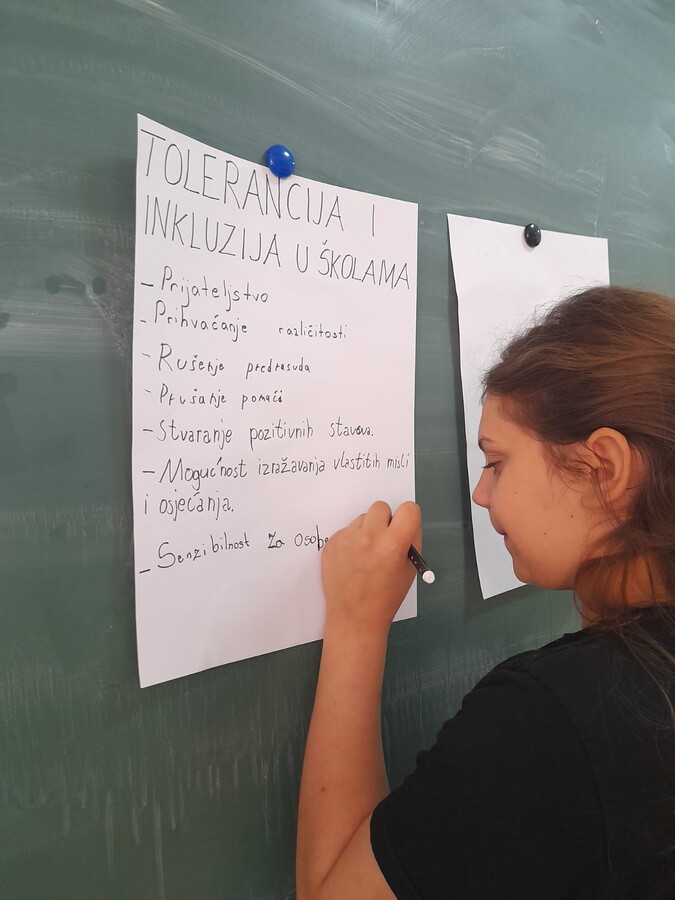 TOLERANCIJA I
INKLUZIJA U ŠKOLAMA
- Prijateljstvo
- Prihvaćanje različitosti
- Rušenje predrasuda
- Pružanje pomoći
- Stvaranje pozitivnih stavova.
- Mogućnost izražavanja vlastitih misli
i osjećanja.
- Senzibilnost za osobe